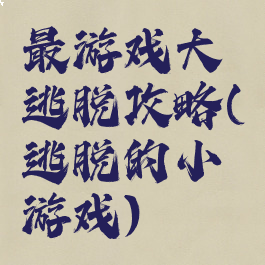 最游戏大
逃脱攻略(
逃脱的小
游戏)